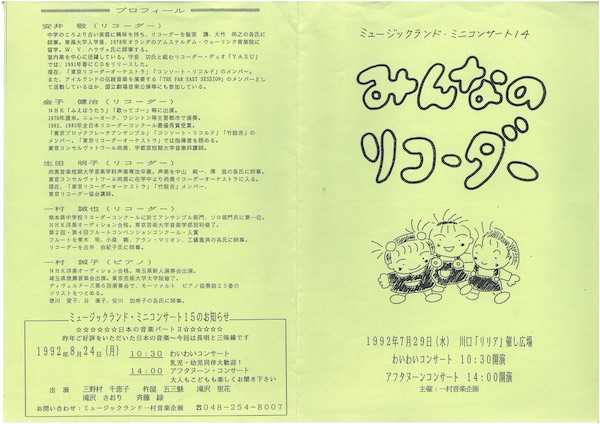 プロフィール
安井 敬(リコーダー)
中学のころより古い楽器に興味を持ち、リコーダーを飯室 謙、大竹 尚之の各氏に
師事。東海大学入学後、1978年オランダのアムステルダム・ウェーリンク音楽院に
留学。W.V.ハウヴェ氏に師事する。
室内楽を中心に活躍している。守安 功氏と組むリコーダー・デュオ「YASU」
では、1991年春にCDをリリースした。
現在、「東京リコーダーオーケストラ」「コンソート・リコルド」のメンバー。
また、アイルランドの伝統音楽を演奏する「THE FAR EAST SESSION」のメンバーとし
て活動しているほか、国立劇場音楽公演等にも参加している。
金子 健治(リコーダー)
NHK「ふえはうたう」「歌ってゴー」等に出演。
1976年渡米、ニューヨーク、ワシントン等主要都市で演奏。
1982、1983年全日本リコーダーコンクール最優秀賞受賞。
「東京ブロックフレーテアンサンブル」「コンソート・リコルド」「竹翫舌」の
メンバー。「東京リコーダーオーケストラ」では指揮者を務める。
東京コンセルヴァトワール尚美、宇都宮短期大学音楽科講師。
生田 明子(リコーダー)
尚美音楽短期大学音楽学科声楽専攻卒業。声楽を中山 純一、澤 亘の各氏に師事。
東京コンセルヴァトワール尚美に在学中より尚美リコーダーオーケストラに入る。
現在、「東京リコーダーオーケストラ」「竹翫舌」メンバー。
東京リコーダー協会講師。
一村 誠也(リコーダー)
熊本県中学校リコーダーコンクールに於てアンサンブル部門、ソロ部門共に第一位。
NHK洋楽オーディション合格。東京芸術大学音楽学部別科修了。
第2回・第4回フルートコンベンションコンクール・入賞
フルートを青木 明、小泉 剛、アラン・マリオン、工藤重典の各氏に師事。
リコーダーを吉井 由紀子氏に師事。
一村 誠子(ピアノ)
NHK洋楽オーディション合格。埼玉県新人演奏会出演。
埼玉県推薦音楽会出演。東京芸術大学学院修了。
ディヴェルクーズ第6回演奏会で、モーツァルト ピアノ協奏曲23番の
ソリストをつとめる。
徳川 愛子、谷 康子、安川 加寿子の各氏に師事。
ミュージックランド・ミニコンサート15のお知らせ
☆☆☆☆☆☆日本の音楽パートⅡ☆☆☆☆☆☆
昨年ご好評をいただいた日本の音楽〜今回は長唄と三味線です
1992年8月24日(月) 10:30 わいわいコンサート
乳児・幼児同伴大歓迎!
14:00 アフタヌーン・コンサート
大人もこどもも楽しくお聞き下さい
出演 三野村 千恵子 杵屋 五三魅 滝沢 里花
滝沢 さおり 斉藤 緑
お問い合わせ:ミュージックランド一村音楽企画 ☎048-254-8007
ミュージックランド・ミニコンサート14
みんなの
リコーダー
1992年7月29日(水) 川口「リリア」催し広場
わいわいコンサート 10:30開演
アフタヌーンコンサート 14:00開演
主催:一村音楽企画